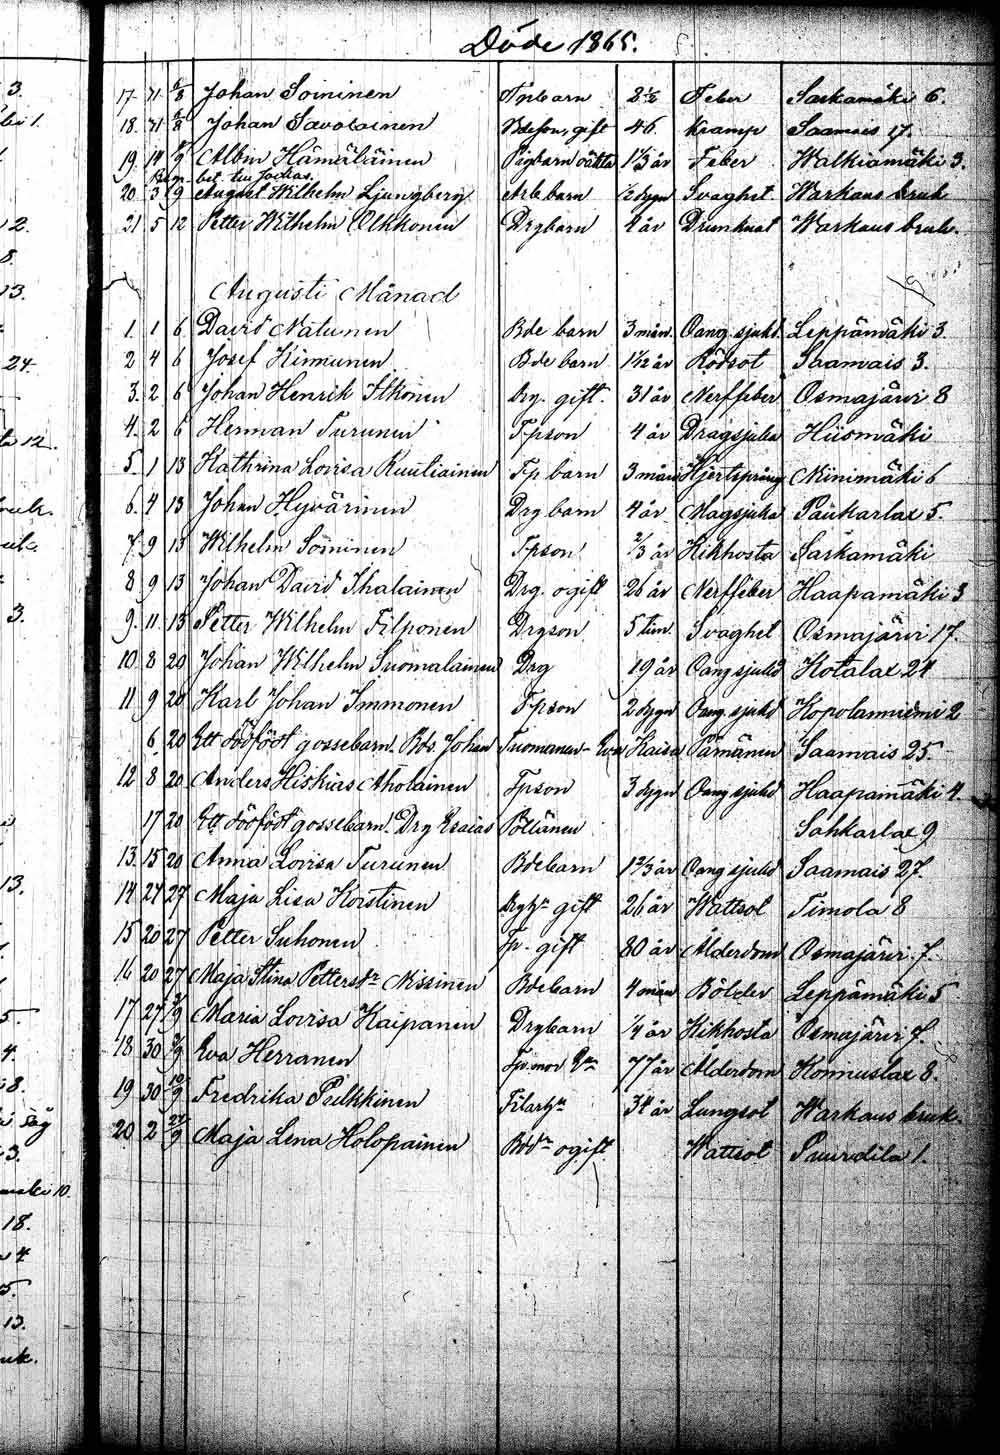 Döde 1865.
17 31 6/8 Johan Soininen Tpbarn 2 1/2 Feber Saskamäki 6.
18. 31 6/8 Johan Savolainen Bdeson, gift 46. Kramp Saamais 17.
19. 14 /9 Albin Hämäläinen Pigbarn oäkta 1 1/3 år Feber Walkiamäki 3.
20 3 9 August Wilhelm Ljungberg Arb barn 1/2 dygn Svaghet Warkaus bruk
21 5 12 Petter Wilhelm Olkkonen Drgbarn 4 år Drunknat Warkaus bruk.
Augusti Månad
1. 1 6 David Natunen Bde barn 3 mån. Oang. sjukd. Leppämäki 3.
2 4 6 Josef Kinnunen Bde barn 1 1/2 år Rödsot Saamais 3.
3. 2 6 Johan Henrik Itkonen Drg. gift. 31 år Nerffeber Osmajärvi 8
4. 2 6 Herman Turunen Tpson 4 år Dragsjuka Hiismäki
5. 1 13 Kathrina Lovisa Ruuliainen Tp barn 3 mån Hjertsprång Niinimäki 6
6. 4 13 Johan Hyvärinen Drg barn 4 år Magsjuka Paukarlax 5.
7. 9 13 Wilhelm Soininen Tpson 2/3 år Kikhosta Saskamäki
8 9 13 Johan David Ihalainen Drg. ogift 26 år Nerffeber Haapamäki 3
9. 11. 13 Petter Wilhelm Filponen Drgson 5 tim. Svaghet Osmajärvi 17.
10. 8 20 Johan Wilhelm Suomalainen Drg 19 år Oang sjukd Kotalax 24
11 9 20 Karl Johan Immonen Tpson 2 dygn Oang. sjukd Kopolanniemi 2
6. 20 Ett dödfödt gossebarn. Bds. Johan Tuomainen - Eva Kaisa Pärnänen Saamais 25.
12 8 20 Anders Hiskias Aholainen Tpson 3 dygn Oang sjukd Haapamäki 4.
17 20 Ett dödfödt gossebarn. Drg Esaias Pöllänen Sahkarlax 9
13. 15 20 Anna Lovisa Turunen Bdebarn 1 2/3 år Oang sjukd Saamais 27.
14 24 27 Maja Lisa Korstinen Drghu gift 26 år Wattsot Timola 8
15 20 27 Petter Suhonen Tp. gift 80 år Ålderdom Osmajärvi 7.
16 20 27 Maja Stina Pettersdr Nissinen Bdebarn 4 mån Bölder Leppämäki 5
17 27 3/9 Maria Lovisa Kaipanen Drgbarn 1/4 år Kikhosta Osmajärvi 7.
18 30 3/9 Eva Herranen Tp. mor Eka 77 år Ålderdom Konnuslax 8.
19 30 10/9 Fredrika Pulkkinen Filarhu 34 år Lungsot Warkaus bruk.
20 2 24/9 Maja Lena Holopainen Bddr ogift Wattsot Puurdila 1.